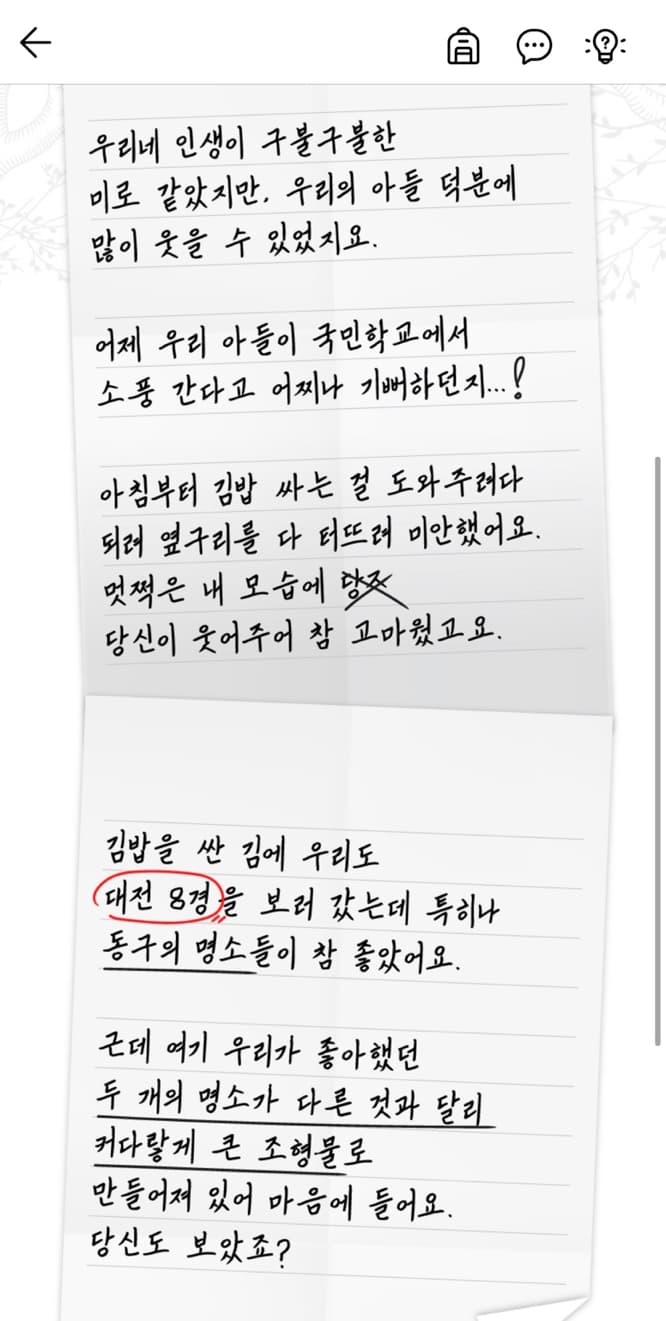 우리네 인생이 구불구불한
미로 같았지만, 우리의 아들 덕분에
많이 웃을 수 있었지요.
어제 우리 아들이 국민학교에서
소풍 간다고 어찌나 기뻐하던지...!
아침부터 김밥 싸는 걸 도와주려다
되려 옆구리를 다 터뜨려 미안했어요.
멋쩍은 내 모습에 당즈
당신이 웃어주어 참 고마웠고요.
김밥을 싼 김에 우리도
대전 8경을 보러 갔는데 특히나
동구의 명소들이 참 좋았어요.
근데 여기 우리가 좋아했던
두 개의 명소가 다른 것과 달리
커다랗게 큰 조형물로
만들어져 있어 마음에 들어요.
당신도 보았죠?